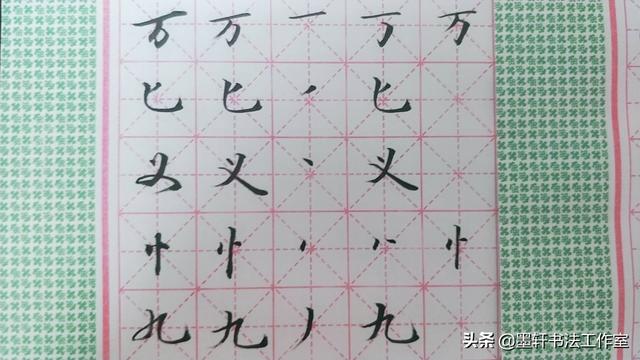 万 万 一 丆 万
匕 匕 ㇒ 匕
义 义 丶 义
忄 忄 丶 丷 忄
九 九 丿 九
头条 @墨轩书法工作室